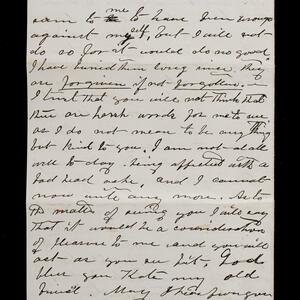 seem to me to have been wrongs
against myself, but I will not
do so for it would do no good.
I have buried them long since. they
are forgiven if not forgotten. —
I trust that you will not think that
these are harsh words for me to use
as I do not mean to be any thing
but kind to you. I am not at all
well to day. being affected with a
bad head ache, and I cannot
now write any more. As to
the matter of seeing you I will say
that it would be a consideration
of pleasure to me and you will
act as you see fit, God
bless you Kate my old
friend. May I hear from you